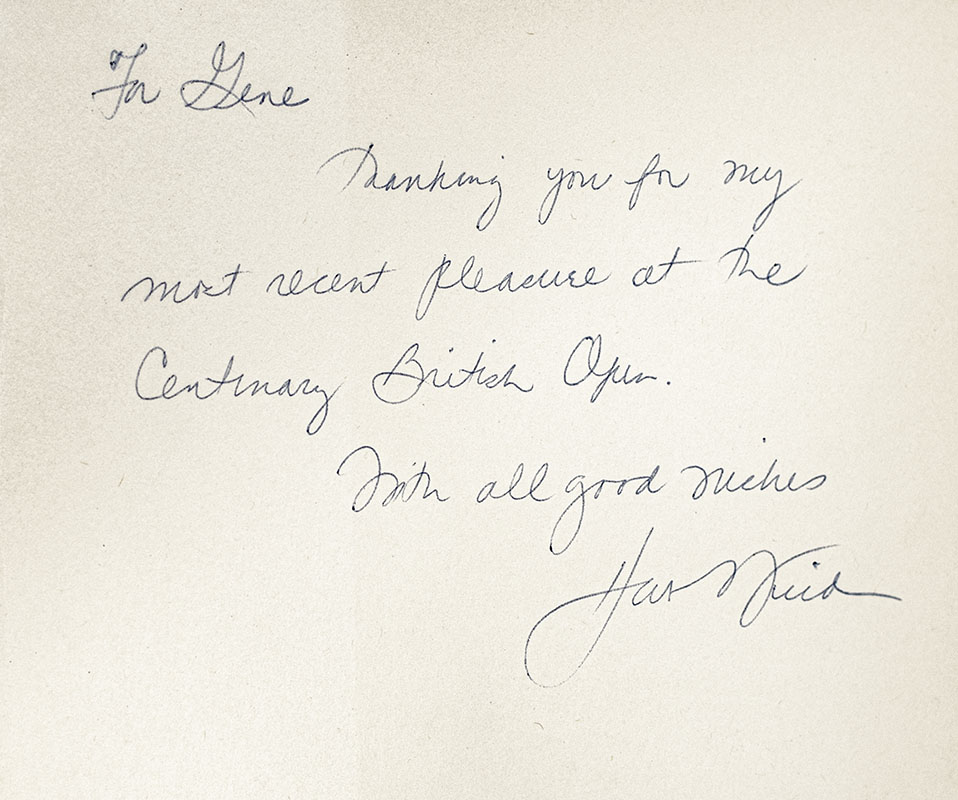 For Gene
Thanking you for my
most recent pleasure at the
Centenary British Open.
With all good wishes